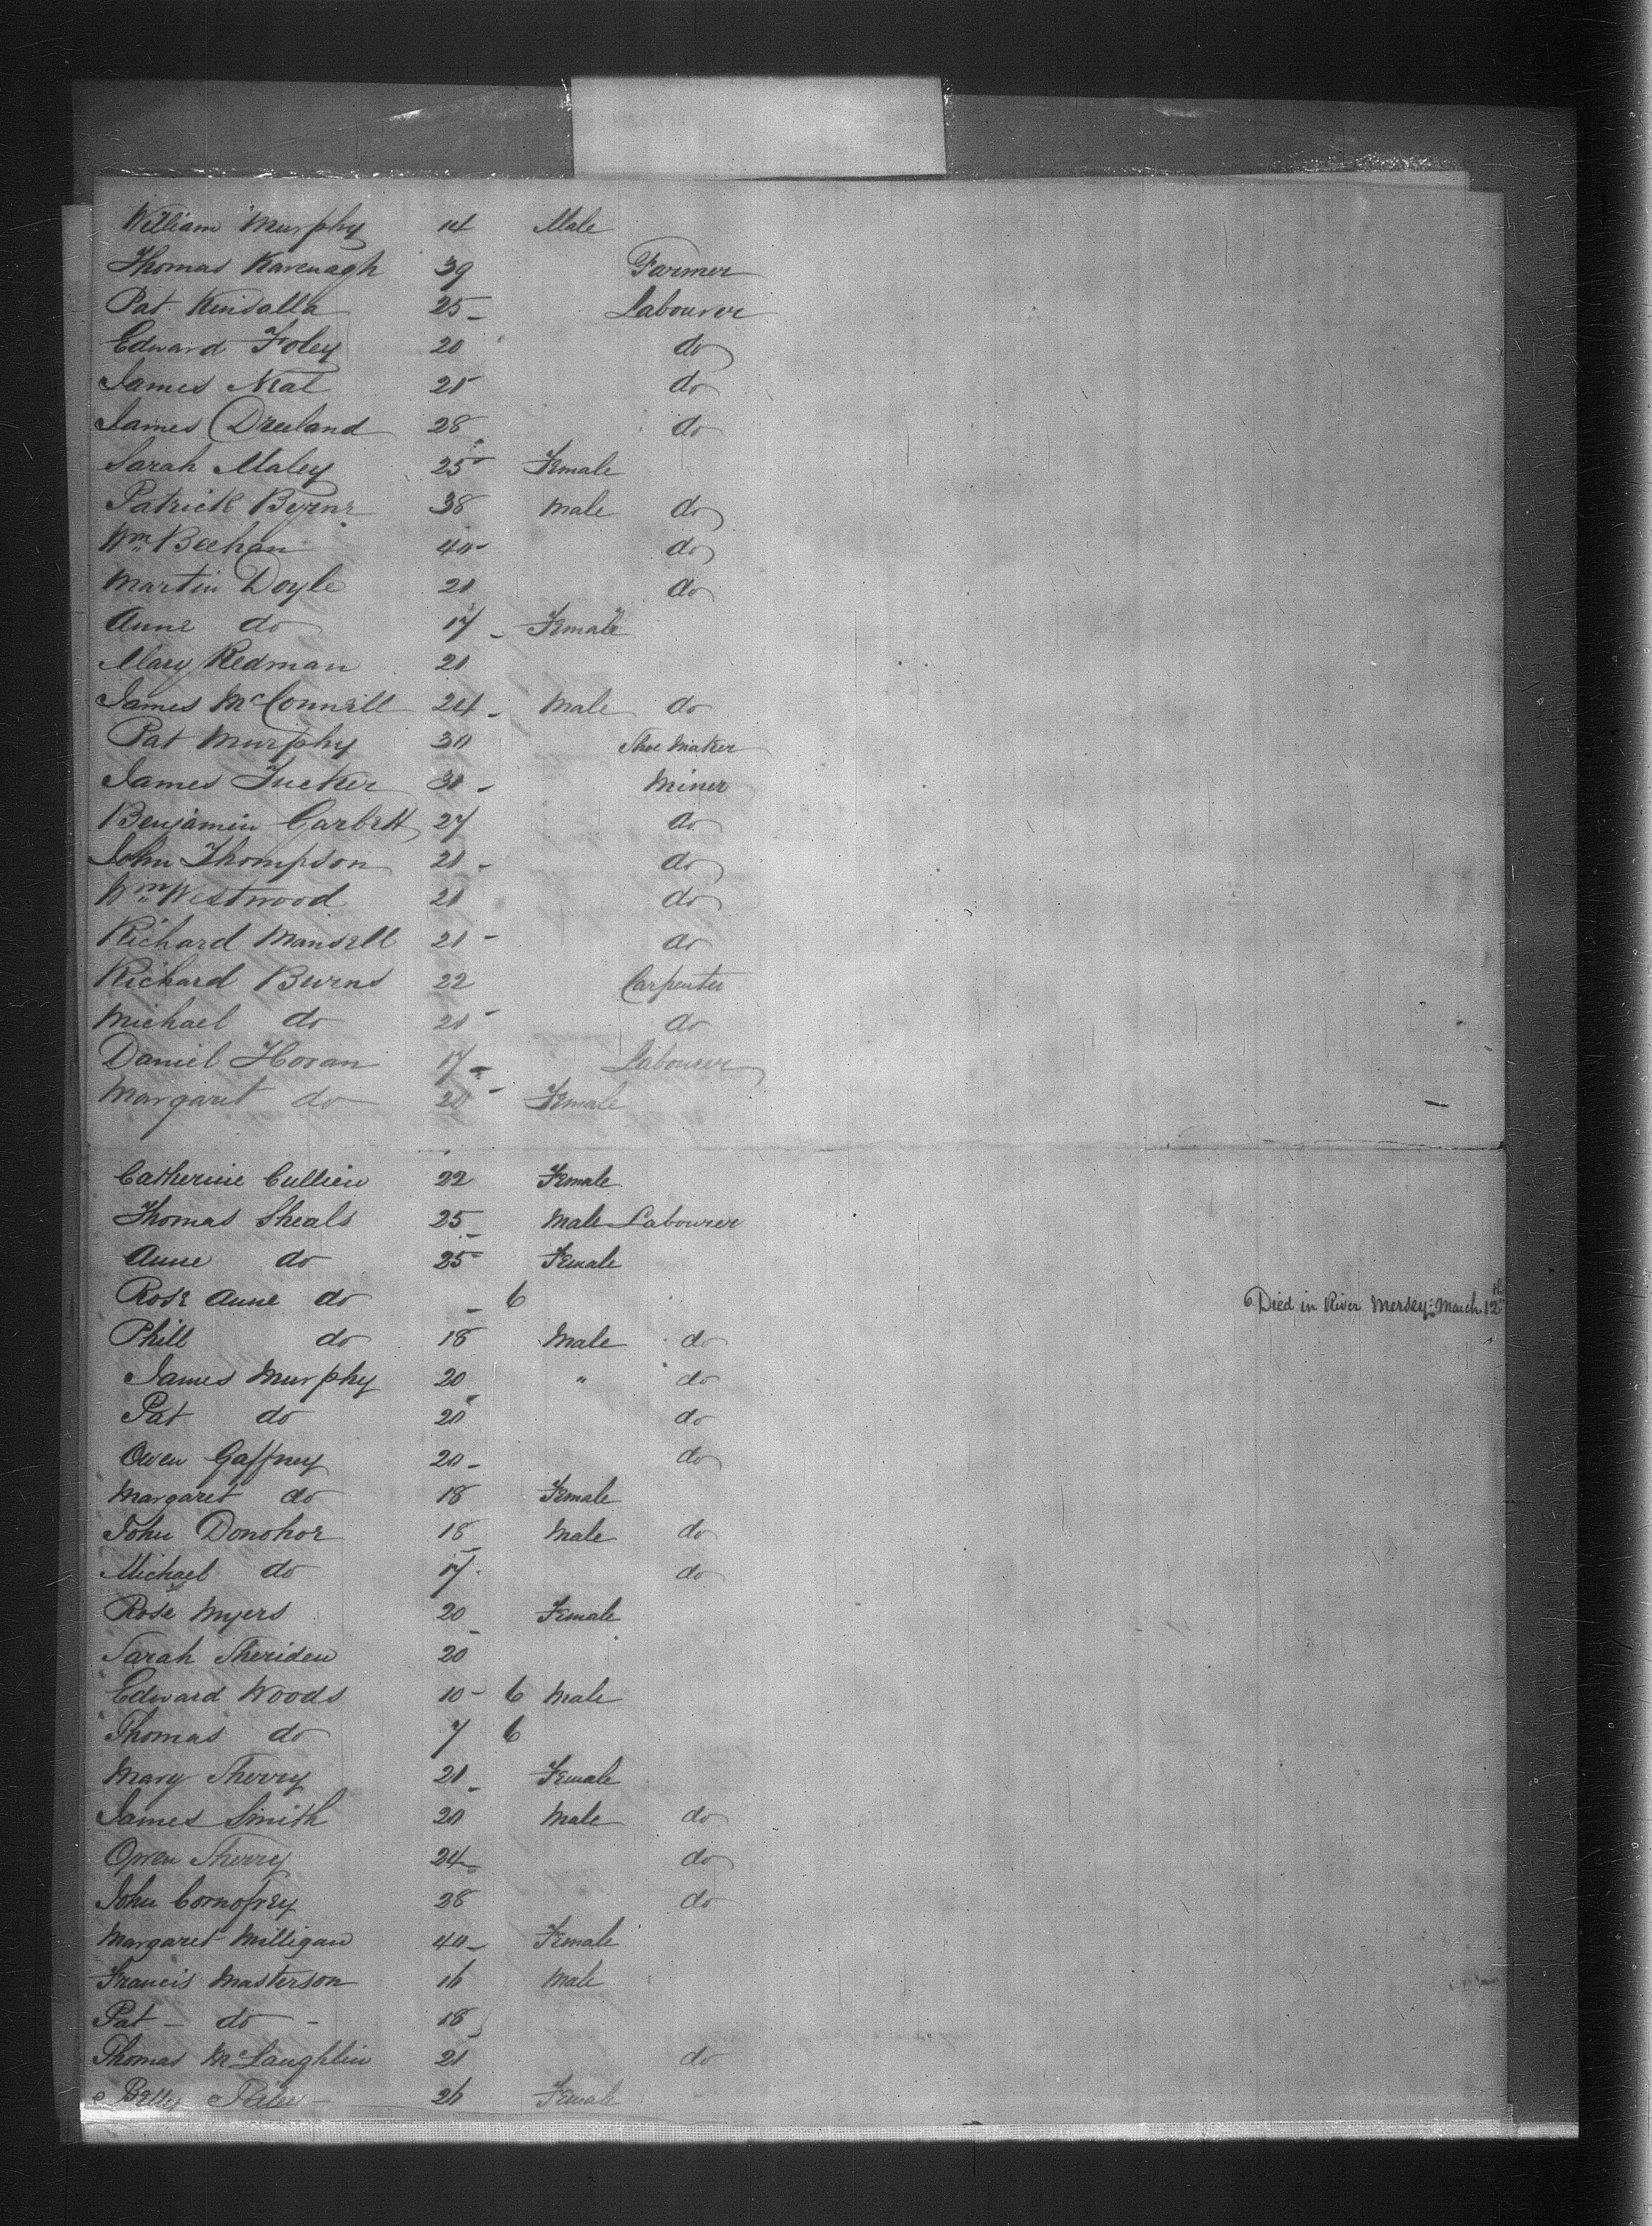 William Murphy 14 Male
Thomas Kavenagh 39 Farmer
Pat Kinsalla 25 Labourer
Edward Foley 20 do
James Neal 21 do
James Dreeland 28 do
Sarah Maley 25 Female
Patrick Byrne 38 Male do
Wm Beehan 40 do
Martin Doyle 21 do
Anne do 17 Female
Mary Redman 21
James McConnell 24 Male do
Pat Murphy 30 Shoe Maker
James Tucker 31 Miner
Benjamin Garbett 27 do
John Thompson 21 do
Wm Westwood 21 do
Richard Mansell 21 do
Richard Burns 22 Carpenter
Michael do 21 do
Daniel Horan 17 Labourer
Margaret do 20 Female
Catherine Cullien 22 Female
Thomas Sheals 25 Male Labourer
Anne do 25 Female
Rose Anne do 6 Died in River Mersey: March 12th
Phill do 18 Male do
James Murphy 20 " do
Pat do 20 do
Owen Gaffney 20 do
Margaret do 18 Female
John Donohoe 18 Male do
Michael do 17 do
Rose Myers 20 Female
Sarah Sheriden 20
Edward Woods 10 6 Male
Thomas do 7 6
Mary Sherry 21 Female
James Smith 20 Male do
Owen Sherry 24 do
John 28 do
Margaret Milligan 40 Female
Francis Masterson 16 Male
Pat - do - 18
Thomas McLaughlin 21 do
Betty 26 Female